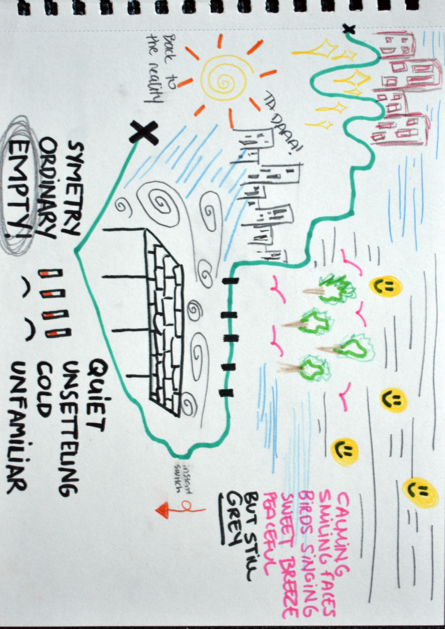 CALMING
SMILING FACES
BIRDS SINGING
SWEET BREEZE
PEACEFUL
BUT STILL
GREY
TA DAAA!
instant
switch
Back to
the reality
SYMETRY
ORDINARY
EMPTY!
QUIET
UNSETTELING
COLD
UNFAMILIAR